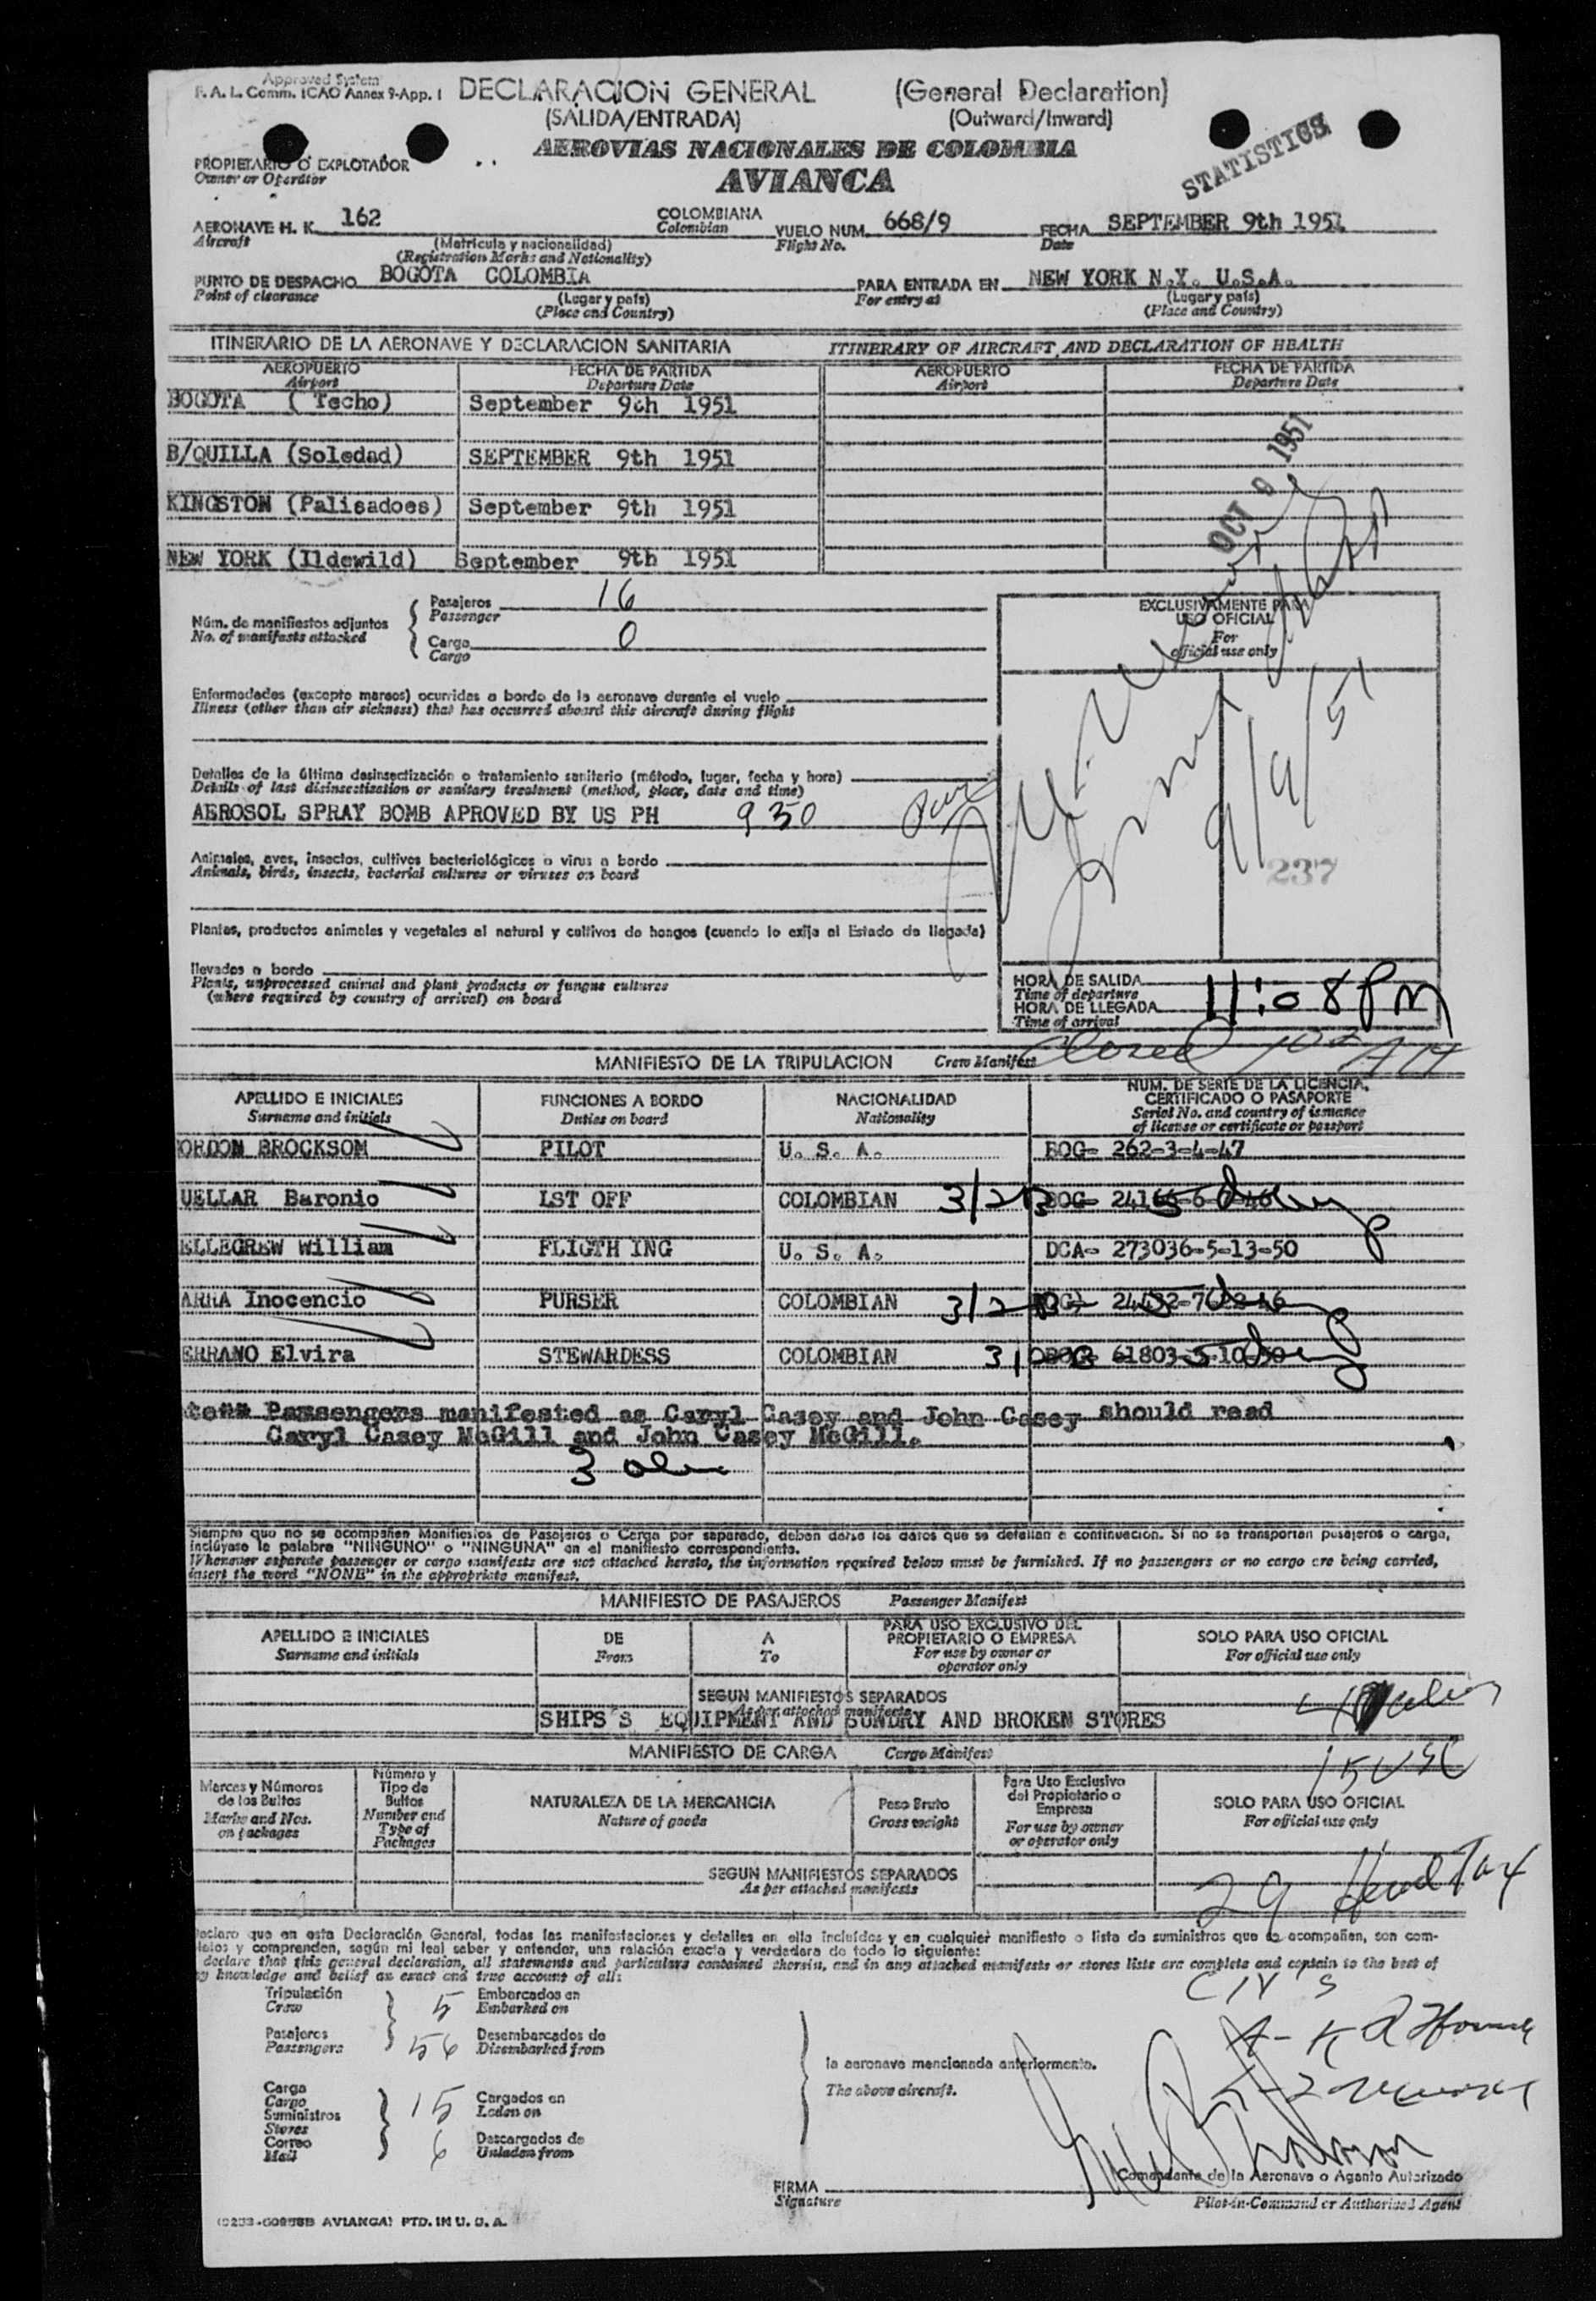 Approved System
F. A. L. Comm. ICAO Annex 9-App. 1 DECLARACION GENERAL (General Declaration)
(SALIDA/ENTRADA) (Outward/Inward)
AEROVIAS NACIONALES DE COLOMBIA
AVIANCA
STATISTICS
PROPIETARIO O EXPLOTADOR
Owner or Operator
AERONAVE H. K. 162 COLOMBIANA VUELO NUM. 668/9 FECHA SEPTEMBER 9th 1951
Aircraft (Matricula y nacionalidad) Colombian Flight No. Date
(Registration Marks and Nationality)
PUNTO DE DESPACHO BOGOTA COLOMBIA PARA ENTRADA EN NEW YORK N.Y. U.S.A.
Point of clearance (Lugar y país) For entry at (Lugar y país)
(Place and Country) (Place and Country)
ITINERARIO DE LA AERONAVE Y DECLARACION SANITARIA ITINERARY OF AIRCRAFT AND DECLARATION OF HEALTH
AEROPUERTO FECHA DE PARTIDA AEROPUERTO FECHA DE PARTIDA
Airport Departure Date Airport Departure Date
BOGOTA (Techo) September 9th 1951
B/QUILLA (Soledad) SEPTEMBER 9th 1951
KINGSTON (Palisadoes) September 9th 1951
NEW YORK (Ildewild) September 9th 1951
OCT 9 1951
Núm. de manifiestos adjuntos Pasajeros 16
No. of manifests attached Passenger
Carga 0
Cargo
EXCLUSIVAMENTE PARA
USO OFICIAL
For
official use only
Enfermedades (excepto mareos) ocurridas a bordo de la aeronave durante el vuelo
Illness (other than air sickness) that has occurred aboard this aircraft during flight
9/9/51
Detalles de la última desinsectización o tratamiento sanitario (método, lugar, fecha y hora)
Details of last disinsectisation or sanitary treatment (method, place, date and time)
AEROSOL SPRAY BOMB APROVED BY US PH 9 30
237
Animales, aves, insectos, cultivos bacteriológicos o virus a bordo
Animals, birds, insects, bacterial cultures or viruses on board
Plantas, productos animales y vegetales al natural y cultivos de hongos (cuando lo exija el Estado de llegada)
llevados a bordo
Plants, unprocessed animal and plant products or fungus cultures
(where required by country of arrival) on board
HORA DE SALIDA
Time of departure
HORA DE LLEGADA 11:08 PM
Time of arrival
MANIFIESTO DE LA TRIPULACION Crew Manifest
APELLIDO E INICIALES FUNCIONES A BORDO NACIONALIDAD NUM. DE SERIE DE LA LICENCIA, CERTIFICADO O PASAPORTE
Surname and initials Duties on board Nationality Serial No. and country of issuance of license or certificate or passport
ORDON BROCKSOM PILOT U. S. A. BOG- 262-3-4-47
UELLAR Baronio 1ST OFF COLOMBIAN
ELLEGREW William FLIGTH ING U. S. A. DCA- 273036-5-13-50
ARRA Inocencio PURSER COLOMBIAN
ERRANO Elvira STEWARDESS COLOMBIAN
Passengers manifested as Caryl Casey and John Casey should read
Caryl Casey McGill and John Casey McGill.
Siempre que no se acompañen Manifiestos de Pasajeros o Carga por separado, deben darse los datos que se detallan a continuación. Si no se transportan pasajeros o carga,
inclúyase la palabra "NINGUNO" o "NINGUNA" en el manifiesto correspondiente.
Whenever separate passenger or cargo manifests are not attached hereto, the information required below must be furnished. If no passengers or no cargo are being carried,
insert the word "NONE" in the appropriate manifest.
MANIFIESTO DE PASAJEROS Passenger Manifest
APELLIDO E INICIALES DE A PARA USO EXCLUSIVO DEL PROPIETARIO O EMPRESA SOLO PARA USO OFICIAL
Surname and initials From To For use by owner or operator only For official use only
SEGUN MANIFIESTOS SEPARADOS
As per attached manifests
SHIPS'S EQUIPMENT AND SUNDRY AND BROKEN STORES
MANIFIESTO DE CARGA Cargo Manifest
15 USC
Marcas y Números de los Bultos Número y Tipo de Bultos NATURALEZA DE LA MERCANCIA Peso Bruto Para Uso Exclusivo del Propietario o Empresa SOLO PARA USO OFICIAL
Marks and Nos. on packages Number and Type of Packages Nature of goods Gross weight For use by owner or operator only For official use only
SEGUN MANIFIESTOS SEPARADOS
As per attached manifests
29 Head Tax
eclaro que en esta Declaración General, todas las manifestaciones y detalles en ella incluídos y en cualquier manifiesto o lista de suministros que la acompañen, son com-
letos y comprenden, según mi leal saber y entender, una relación exacta y verdadera de todo lo siguiente:
declare that this general declaration, all statements and particulars contained therein, and in any attached manifests or stores lists are complete and contain to the best of
my knowledge and belief an exact and true account of all:
Tripulación 5 Embarcados en
Crew Embarked on
Pasajeros 56 Desembarcados de
Passengers Disembarked from
la aeronave mencionada anteriormente.
The above aircraft.
Carga
Cargo 15 Cargados en
Suministros Laden on
Stores
Correo 6 Descargados de
Mail Unladen from
FIRMA
Signature
Comandante de la Aeronave o Agente Autorizado
Pilot-in-Command or Authorised Agent
AVIANCA) PTD. IN U. S. A.